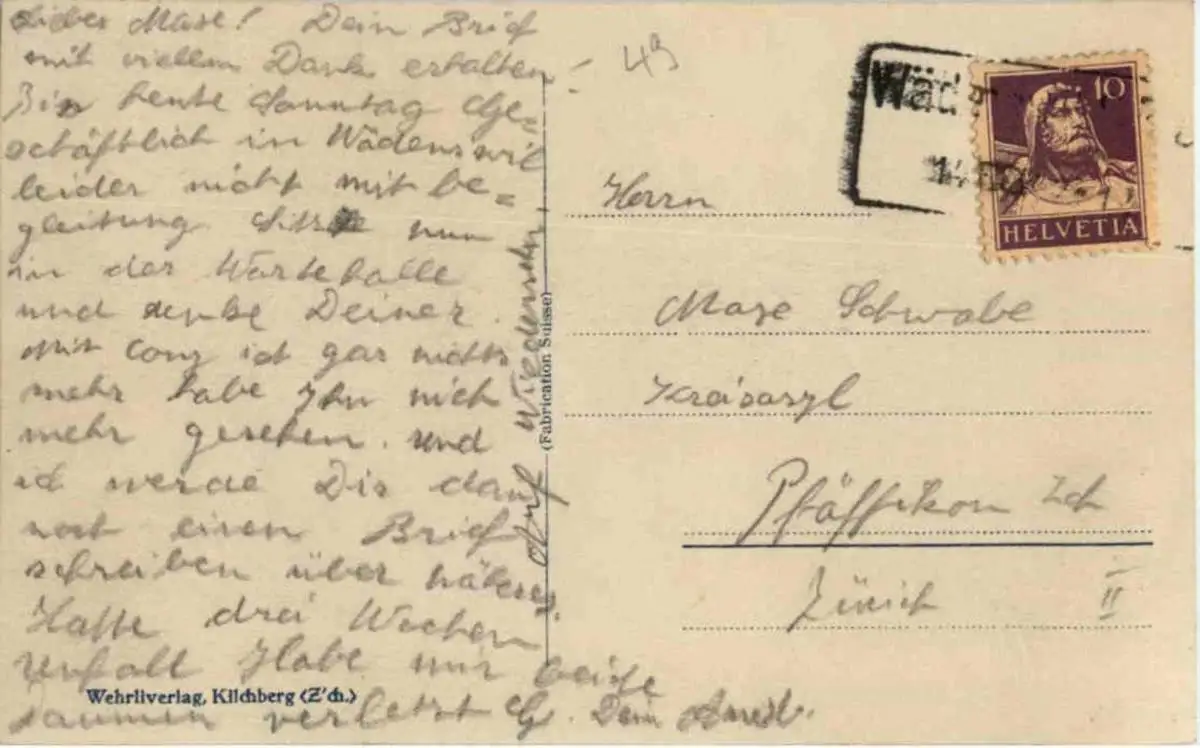 Lieber Maxe! Dein Brief
mit viellem Dank erhalten
Bin heute Sonntag Ge=
schäftlich in Wädenswil
leider nicht mit be=
gleitung nun
in der Wartehalle
und denke Deiner.
Mit ich gar nichts
mehr habe Ihn nich
mehr gesehen. und
ich werde Dir dann
noch einen Brief
schreiben über näheres.
Hatte drei Wochen
Unfall Habe mir beide
Daumen verletzt Dein
auf Wiedersehn
Wehrliverlag, Kilchberg (Z'ch.)
(Fabrication Suisse)
49
Wäd
10
HELVETIA
Herrn
Maxe Schwabe
Kreisasyl
Pfäffikon Zch
Zürich II